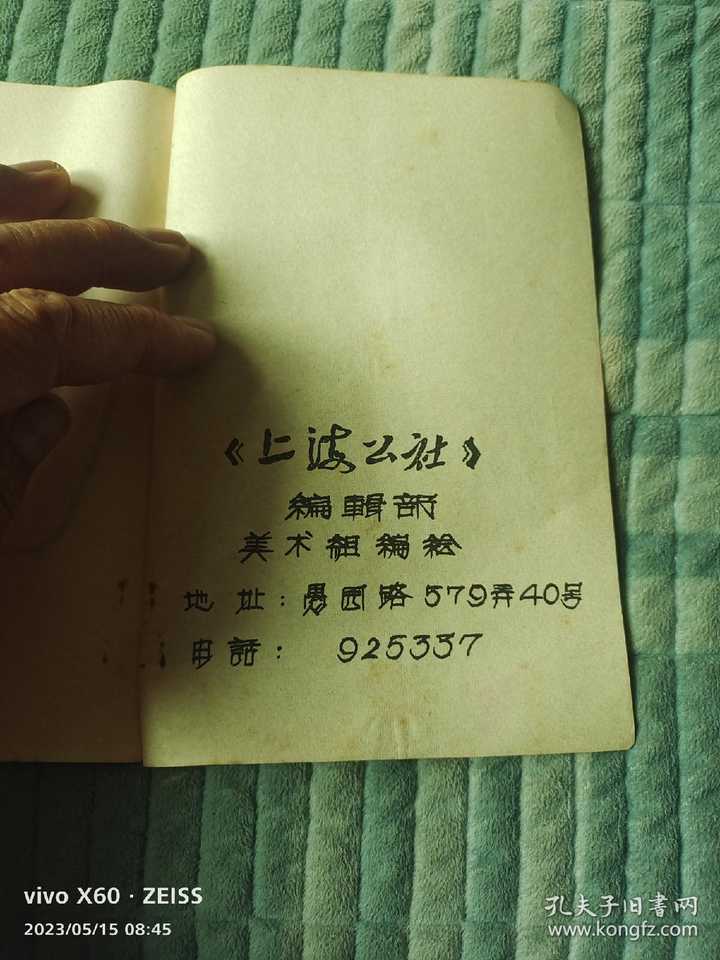 《上海公社》
編輯部
美术组编绘
地址：愚园路579弄40号
电話： 925337
vivo X60 · ZEISS
2023/05/15 08:45
孔夫子旧書网
www.kongfz.com